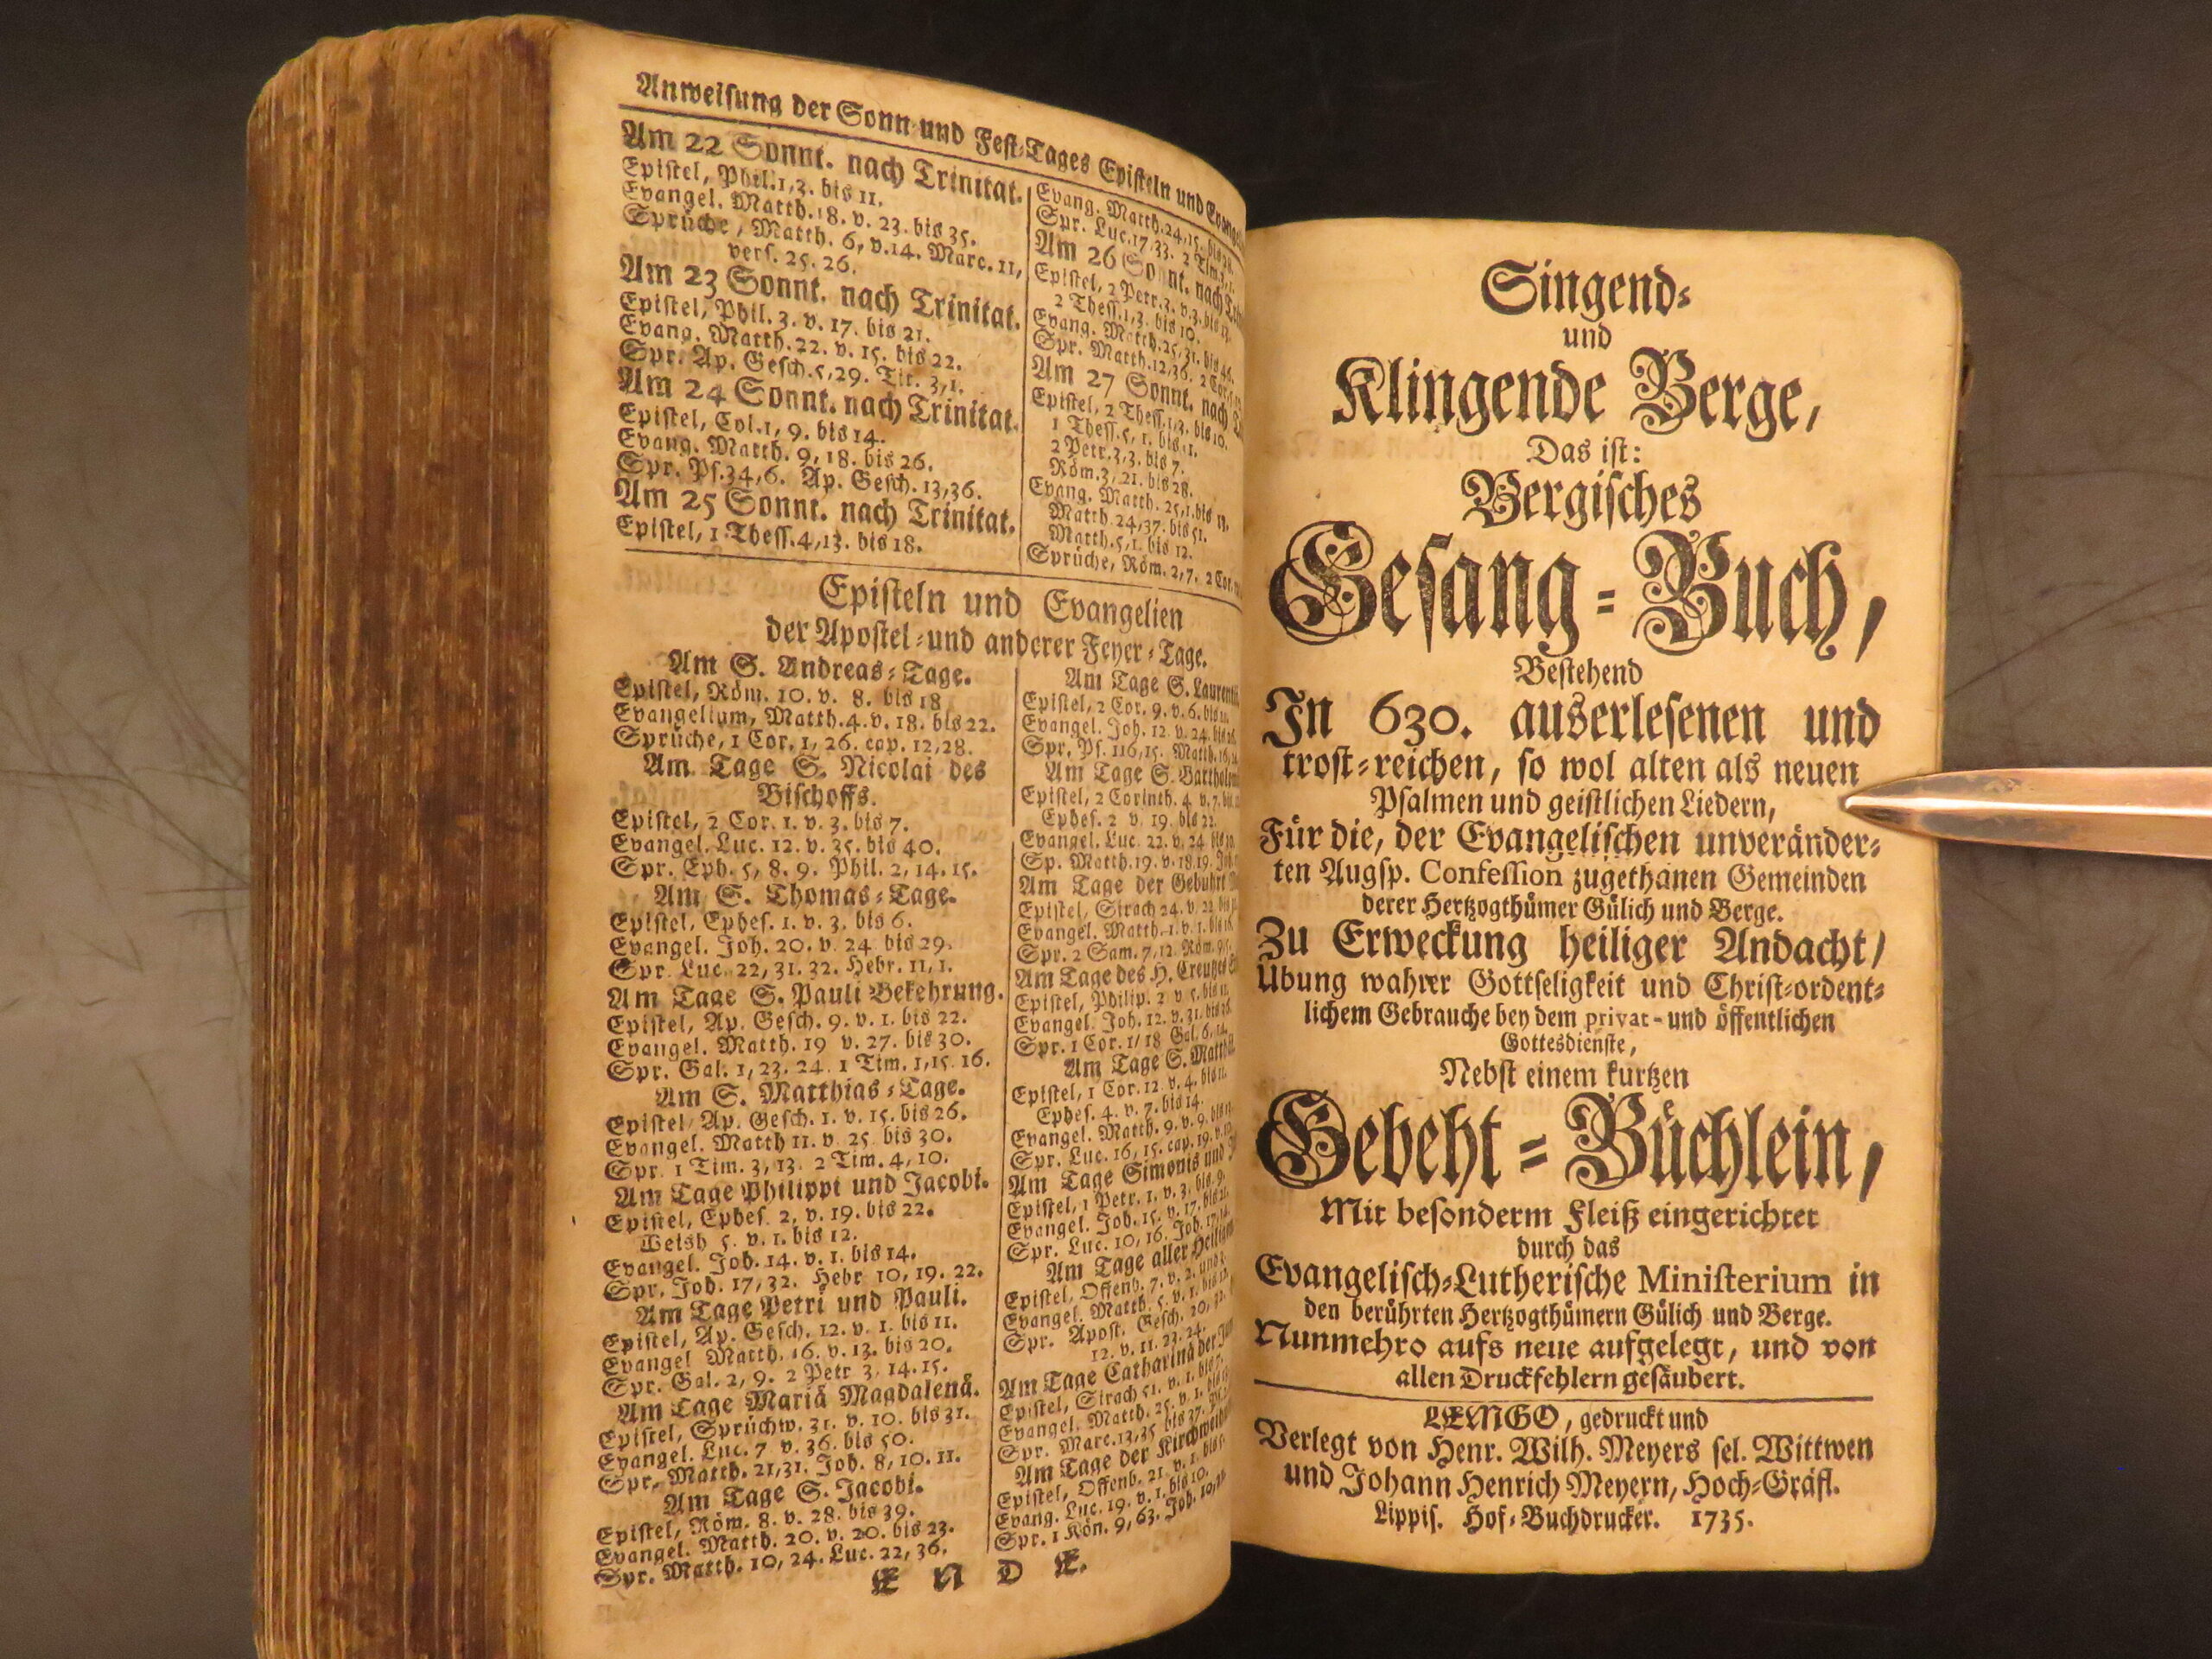 Anweisung der Sonn- und Fest-Tages Episteln und
Am 22 Sonnt. nach Trinitat.
Epistel, Phil. 1, 3. bis 11.
Evangel. Matth. 18. v. 23. bis 35.
Sprüche, Matth. 6, v. 14. Marc. 11,
vers. 25. 26.
Am 23 Sonnt. nach Trinitat.
Epistel, Phil. 3. v. 17. bis 21.
Evang. Matth. 22. v. 15. bis 22.
Spr. Ap. Gesch. 5, 29. Tit. 3, 1.
Am 24 Sonnt. nach Trinitat.
Epistel, Col. 1, 9. bis 14.
Evang. Matth. 9, 18. bis 26.
Spr. Ps. 34, 6. Ap. Gesch. 13, 36.
Am 25 Sonnt. nach Trinitat.
Epistel, 1 Thess. 4, 13. bis 18.
Evang. Matth. 24, 15. bis
Spr. Luc. 17, 33. 2 Tim.
Am 26 Sonnt. nach
Epistel, 2 Petr. 3. v. 3. bis
2 Thess. 1, 3. bis 10.
Evang. Matth. 25, 31. bis 46.
Spr. Matth. 12, 36. 2 Cor.
Am 27 Sonnt. nach
Epistel, 2 Thess. 1, 3. bis 10.
1 Thess. 5, 1. bis 11.
2 Petr. 3, 3. bis 7.
Röm. 3, 21. bis 28.
Evang. Matth. 25, 1. bis 13.
Matth. 24, 37. bis 51.
Matth. 5, 1. bis 12.
Sprüche, Röm. 2, 7. 2 Cor.
Episteln und Evangelien
der Apostel- und anderer Feyer-Tage.
Am S. Andreas-Tage.
Epistel, Röm. 10. v. 8. bis 18
Evangelium, Matth. 4. v. 18. bis 22.
Sprüche, 1 Cor. 1, 26. cap. 12, 28.
Am Tage S. Nicolai des
Bischoffs.
Epistel, 2 Cor. 1. v. 3. bis 7.
Evangel. Luc. 12. v. 35. bis 40.
Spr. Eph. 5, 8. 9. Phil. 2, 14. 15.
Am S. Thomas-Tage.
Epistel, Ephes. 1. v. 3. bis 6.
Evangel. Joh. 20. v. 24 bis 29.
Spr. Luc. 22, 31. 32. Hebr. 11, 1.
Am Tage S. Pauli Bekehrung.
Epistel, Ap. Gesch. 9. v. 1. bis 22.
Evangel. Matth. 19 v. 27. bis 30.
Spr. Gal. 1, 23. 24. 1 Tim. 1, 15. 16.
Am S. Matthias-Tage.
Epistel, Ap. Gesch. 1. v. 15. bis 26.
Evangel. Matth 11. v. 25 bis 30.
Spr. 1 Tim. 3, 13. 2 Tim. 4, 10.
Am Tage Philippi und Jacobi.
Epistel, Ephes. 2, v. 19. bis 22.
Weish 5. v. 1. bis 12.
Evangel. Joh. 14. v. 1. bis 14.
Spr. Joh. 17, 32. Hebr 10, 19. 22.
Am Tage Petri und Pauli.
Epistel, Ap. Gesch. 12. v. 1. bis 11.
Evangel Matth. 16. v. 13. bis 20.
Spr. Gal. 2, 9. 2 Petr 3, 14. 15.
Am Tage Mariä Magdalenä.
Epistel, Sprüchw. 31. v. 10. bis 31.
Evangel. Luc. 7 v. 36. bis 50.
Spr. Matth. 21, 31. Joh. 8, 10. 11.
Am Tage S. Jacobi.
Epistel, Röm. 8. v. 28. bis 39.
Evangel. Matth. 20. v. 20. bis 23.
Spr. Matth. 10, 24. Luc. 22, 36.
Am Tage S. Laurentii
Epistel, 2 Cor. 9. v. 6. bis
Evangel. Joh. 12. v. 24. bis
Spr. Ps. 116, 15. Matth. 16,
Am Tage S.
Epistel, 2 Corinth. 4. v. 7. bis
Ephes. 2 v. 19. bis 22.
Evangel. Luc. 22. v. 24 bis
Sp. Matth. 19. v. 18. 19.
Am Tage der Geburt
Epistel, Sirach 24. v. 22 bis
Evangel. Matth. 1. v. 1. bis 16.
Spr. 2 Sam. 7, 12. Röm.
Am Tage des H. Creutzes
Epistel, Philip. 2 v. 5. bis 11.
Evangel. Joh. 12. v. 31. bis
Spr. 1 Cor. 1, 18 Gal. 6, 14.
Am Tage S.
Epistel, 1 Cor. 12 v. 4. bis 11.
Ephes. 4. v. 7. bis 14.
Evangel. Matth. 9. v. 9. bis
Spr. Luc. 16, 15. cap. 19. v.
Am Tage Simonis und
Epistel, 1 Petr. 1. v. 3. bis 9.
Evangel. Joh. 15. v. 17. bis 21.
Spr. Luc. 10, 16. Joh. 17, 14.
Am Tage aller Heiligen
Epistel, Offenb. 7. v. 2. und
Evangel. Matth. 5. v. 1. bis 12.
Spr. Apost. Gesch. 20, 32.
12. v. 11. 23. 24.
Am Tage Catharinä der
Epistel, Sirach 51. v. 1. bis
Evangel. Matth. 25. v. 1. bis
Spr. Marc. 13, 35 bis 37.
Am Tage der Kirchweihung
Epistel, Offenb. 21. v. 1. bis
Evang. Luc. 19. v. 1. bis 10.
Spr. 1 Kön. 9, 63. Joh. 10,
ENDE.
Singend-
und
Klingende Berge,
Das ist:
Bergisches
Gesang-Buch,
Bestehend
In 630. auserlesenen und
trost-reichen, so wol alten als neuen
Psalmen und geistlichen Liedern,
Für die, der Evangelischen unveränder-
ten Augsp. Confession zugethanen Gemeinden
derer Hertzogthümer Gülich und Berge.
Zu Erweckung heiliger Andacht/
Übung wahrer Gottseligkeit und Christ-ordent-
lichem Gebrauche bey dem privat- und öffentlichen
Gottesdienste,
Nebst einem kurtzen
Gebeht-Büchlein,
Mit besonderm Fleiß eingerichtet
durch das
Evangelisch-Lutherische Ministerium in
den berührten Hertzogthümern Gülich und Berge.
Nunmehro aufs neue aufgelegt, und von
allen Druckfehlern gesäubert.
LEMGO, gedruckt und
Verlegt von Henr. Wilh. Meyers sel. Wittwen
und Johann Henrich Meyern, Hoch-Gräfl.
Lippis. Hof-Buchdrucker. 1735.